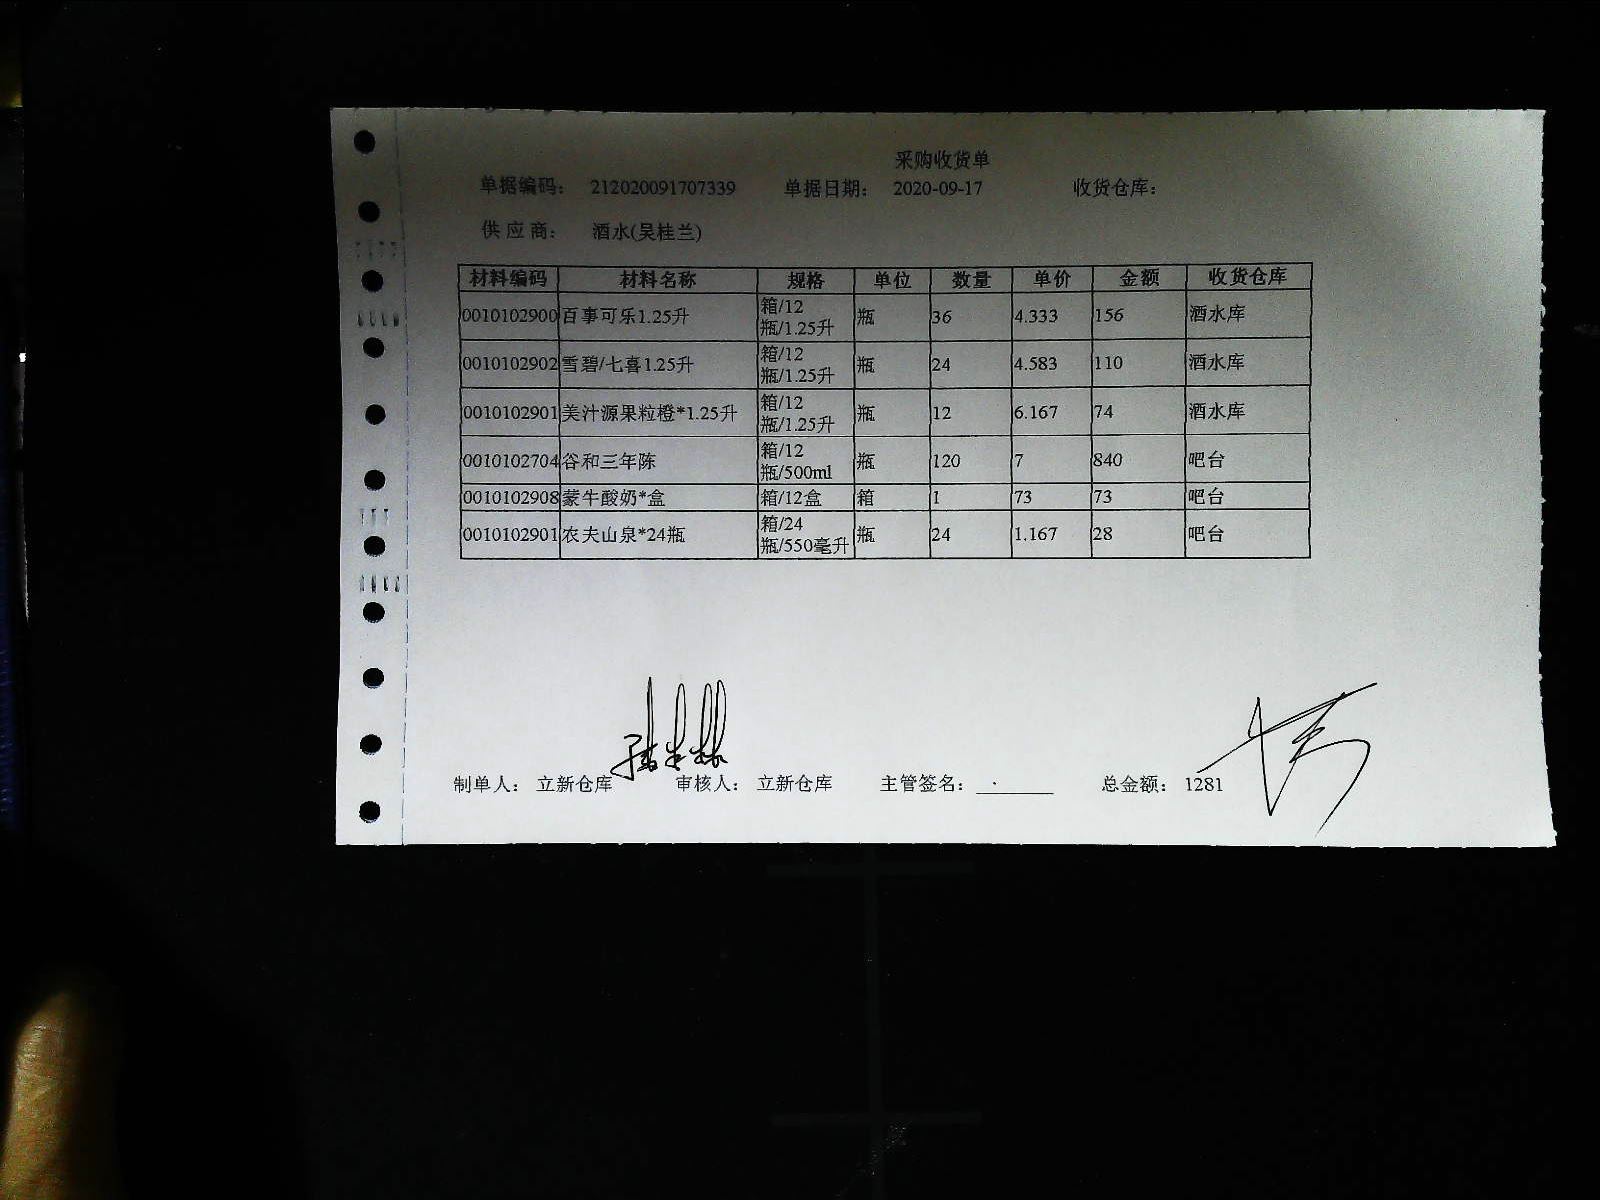 采购收货单
单据编码： 212020091707339 单据日期： 2020-09-17 收货仓库：
供应商： 酒水(吴桂兰)
材料编码 材料名称 规格 单位 数量 单价 金额 收货仓库
0010102900 百事可乐1.25升 箱/12瓶/1.25升 瓶 36 4.333 156 酒水库
0010102902 雪碧/七喜1.25升 箱/12瓶/1.25升 瓶 24 4.583 110 酒水库
0010102901 美汁源果粒橙*1.25升 箱/12瓶/1.25升 瓶 12 6.167 74 酒水库
0010102704 谷和三年陈 箱/12瓶/500ml 瓶 120 7 840 吧台
0010102908 蒙牛酸奶*盒 箱/12盒 箱 1 73 73 吧台
0010102901 农夫山泉*24瓶 箱/24瓶/550毫升 瓶 24 1.167 28 吧台
制单人： 立新仓库 审核人： 立新仓库 主管签名： 总金额： 1281